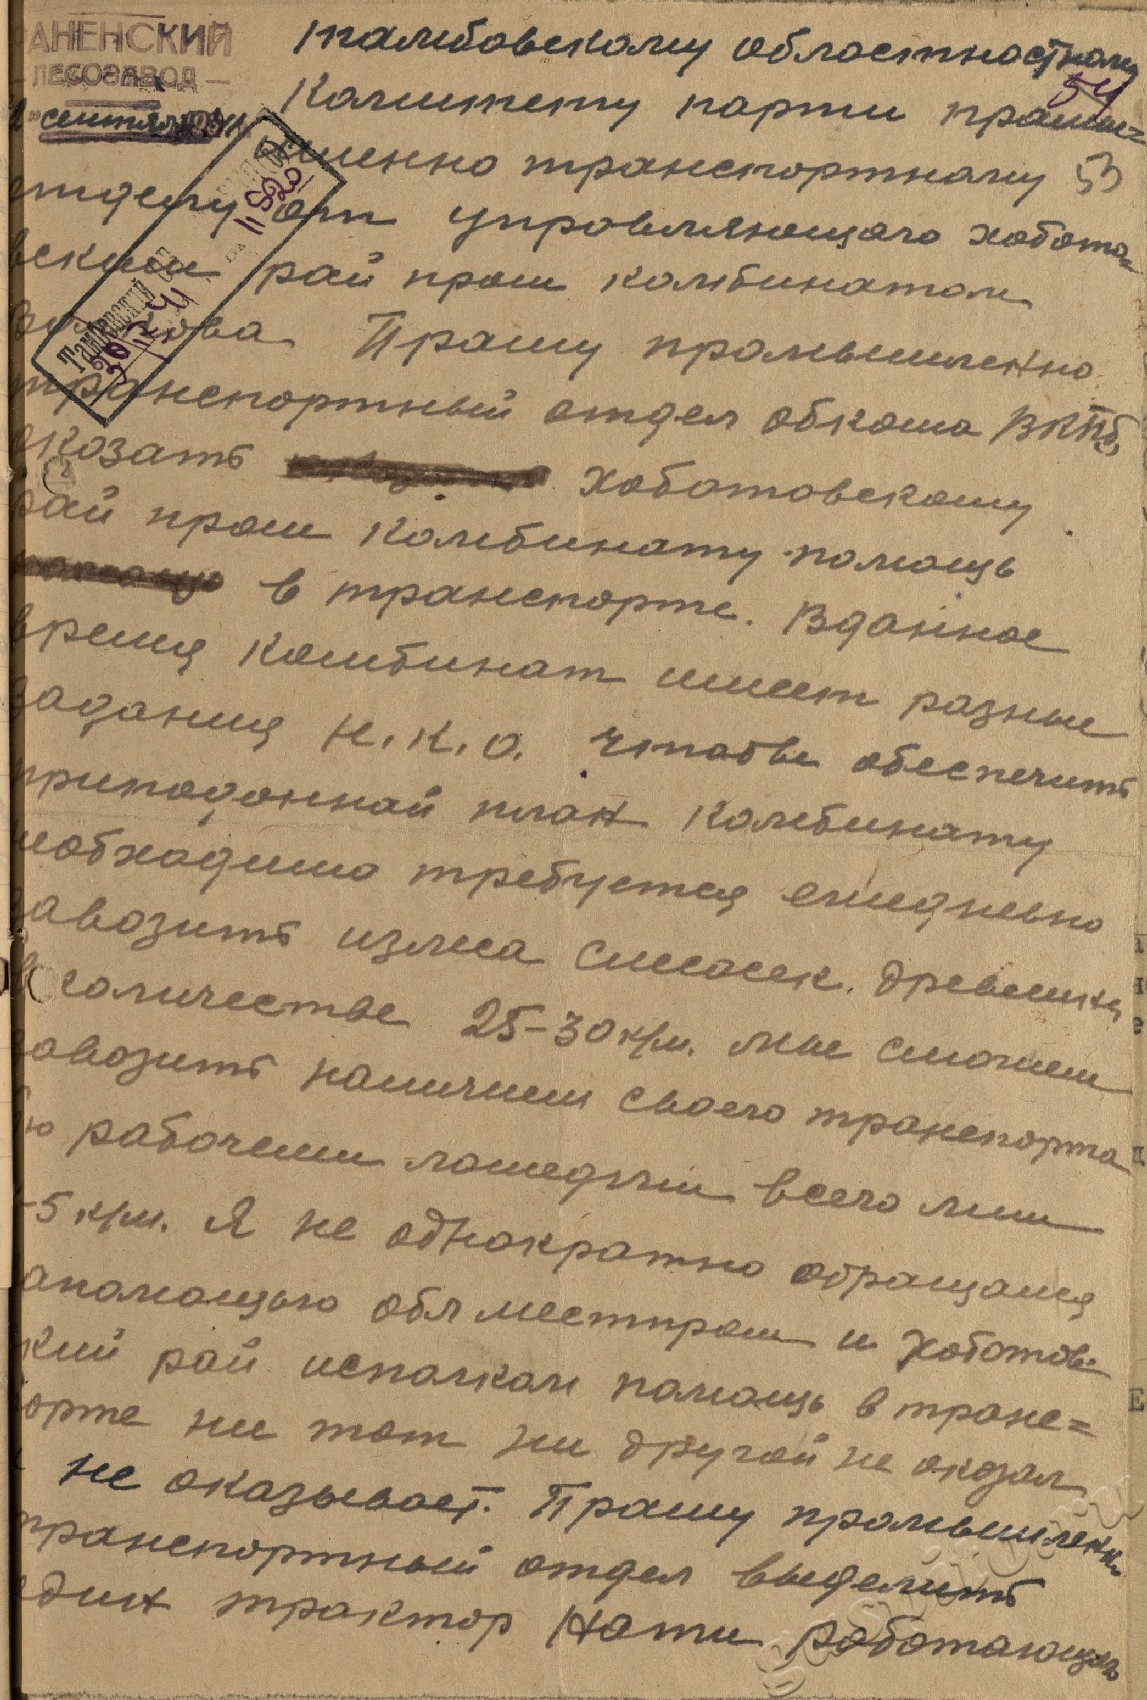 АНЕНСКИЙ
ЛЕСОЗАВОД
сентября
Тамбовскому областностному
54
Комитету парти промы=
шленно транспортному 53
отделу от управляющего хобота=
вским рай пром комбинатом
Прашу промышленно
транспортный отдел обкома ВКПб,
оказать хоботовскому
рай пром комбинату помощь
в транспорте. Вданное
время комбинат имеет разные
задания Н.К.О. Чтобы обеспечить
приподонной план комбинату
необходимо требуется ежедневно
завозить излеса слесосек. древесины
в количестве 25-30 к/м. мы сможем
завозить наличием своего транспорта
рабочеми лошедьми всего лиш
-5 к/м. Я не однократно обращался
запомощью облместпром и Хоботовс
кий рай исполком помощь в транс=
порте ни тот ни другой не окозал
и не оказывает. Прашу промышленно
транспортный отдел выделить
один трактор Нати работающего